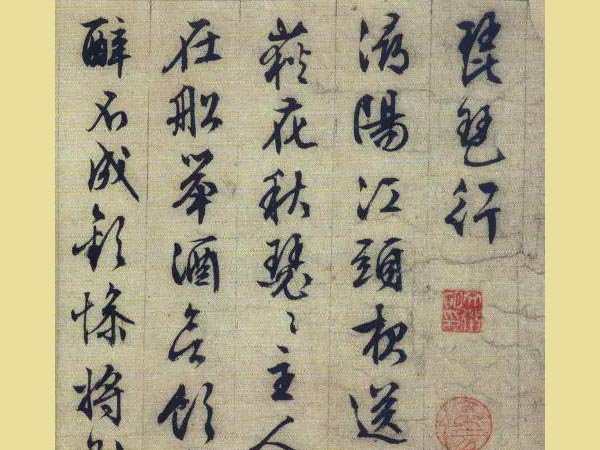 琵琶行
潯陽江頭夜送
荻花秋瑟〻主人
在船舉酒欲飲
醉不成歡慘將